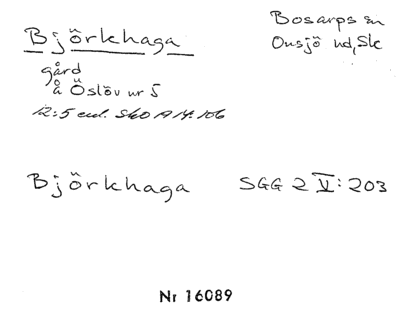 Björkhaga
Bosarps sn
Onsjö hd, Sk
gård
å Öslöv nr 5
12:5 enl. SkO A 14:106
Björkhaga SGG 2 V: 203
Nr 16089